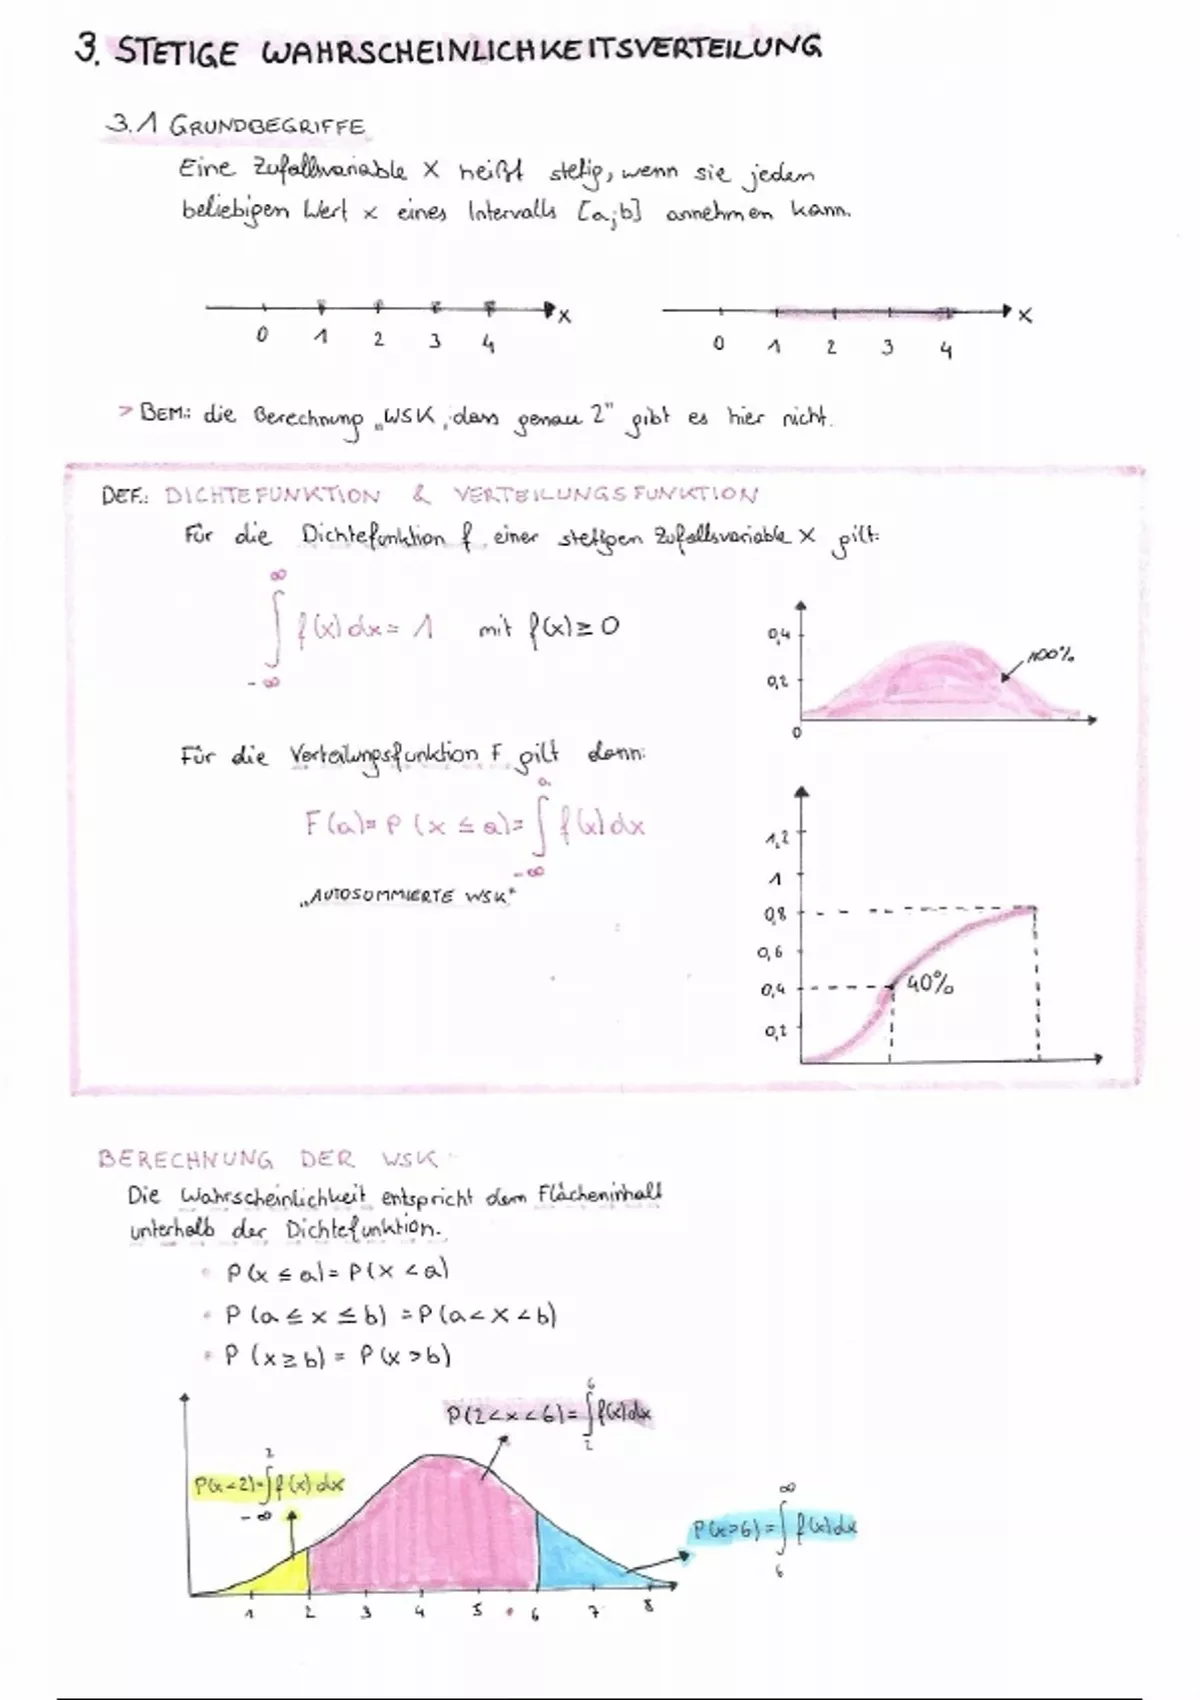 3. STETIGE WAHRSCHEINLICHKEITSVERTEILUNG
3.1 GRUNDBEGRIFFE
Eine Zufallsvariable X heißt stetig, wenn sie jeden
beliebigen Wert x eines Intervalls [a;b] annehmen kann.
0 1 2 3 4 x
0 1 2 3 4 x
> BEM.: die Berechnung „WSK, dass genau 2" gibt es hier nicht.
DEF.: DICHTEFUNKTION & VERTEILUNGSFUNKTION
Für die Dichtefunktion f einer stetigen Zufallsvariable X gilt:
∫_{-∞}^{∞} f(x)dx = 1 mit f(x) ≥ 0
0,4
0,2
0
100%
Für die Verteilungsfunktion F gilt dann:
F(a) = P(x ≤ a) = ∫_{-∞}^{a} f(x)dx
„AUTOSOMMIERTE WSK"
1,2
1
0,8
0,6
0,4
0,2
40%
BERECHNUNG DER WSK
Die Wahrscheinlichkeit entspricht dem Flächeninhalt
unterhalb der Dichtefunktion.
• P(x ≤ a) = P(x < a)
• P(a ≤ x ≤ b) = P(a < x < b)
• P(x ≥ b) = P(x > b)
P(2 < x < 6) = ∫_{2}^{6} f(x)dx
P(x < 2) = ∫_{-∞}^{2} f(x)dx
P(x > 6) = ∫_{6}^{∞} f(x)dx
1 2 3 4 5 6 7 8